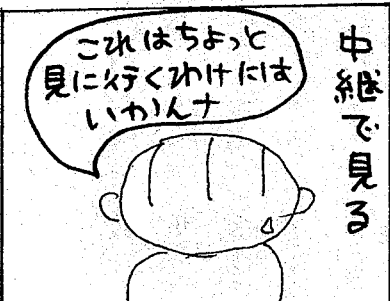 中継で見る
これはちょっと
見に行くわけには
いかんナ